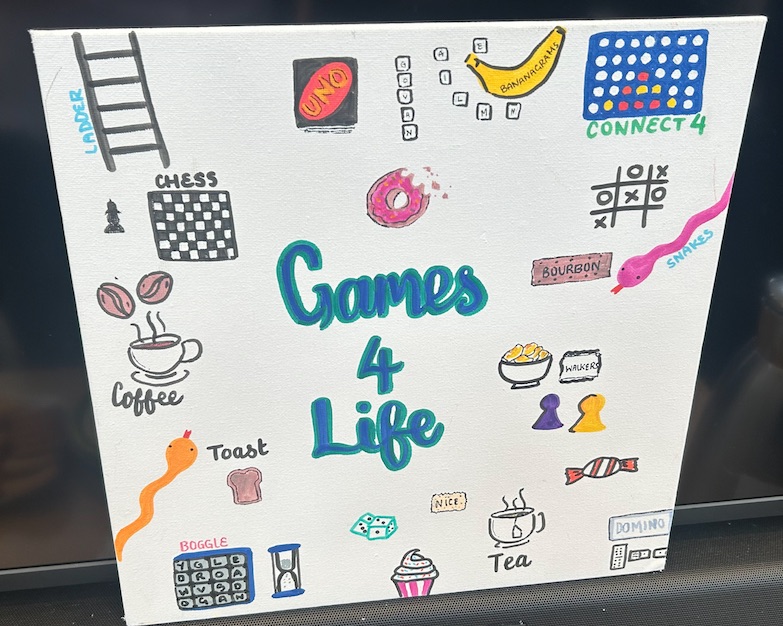 LADDER
UNO
GOVAN
BANANAGRAMS
CONNECT 4
CHESS
O X
O X O
X
SNAKES
BOURBON
Games
4
Life
WALKERS
Coffee
Toast
NICE
Tea
DOMINO
BOGGLE